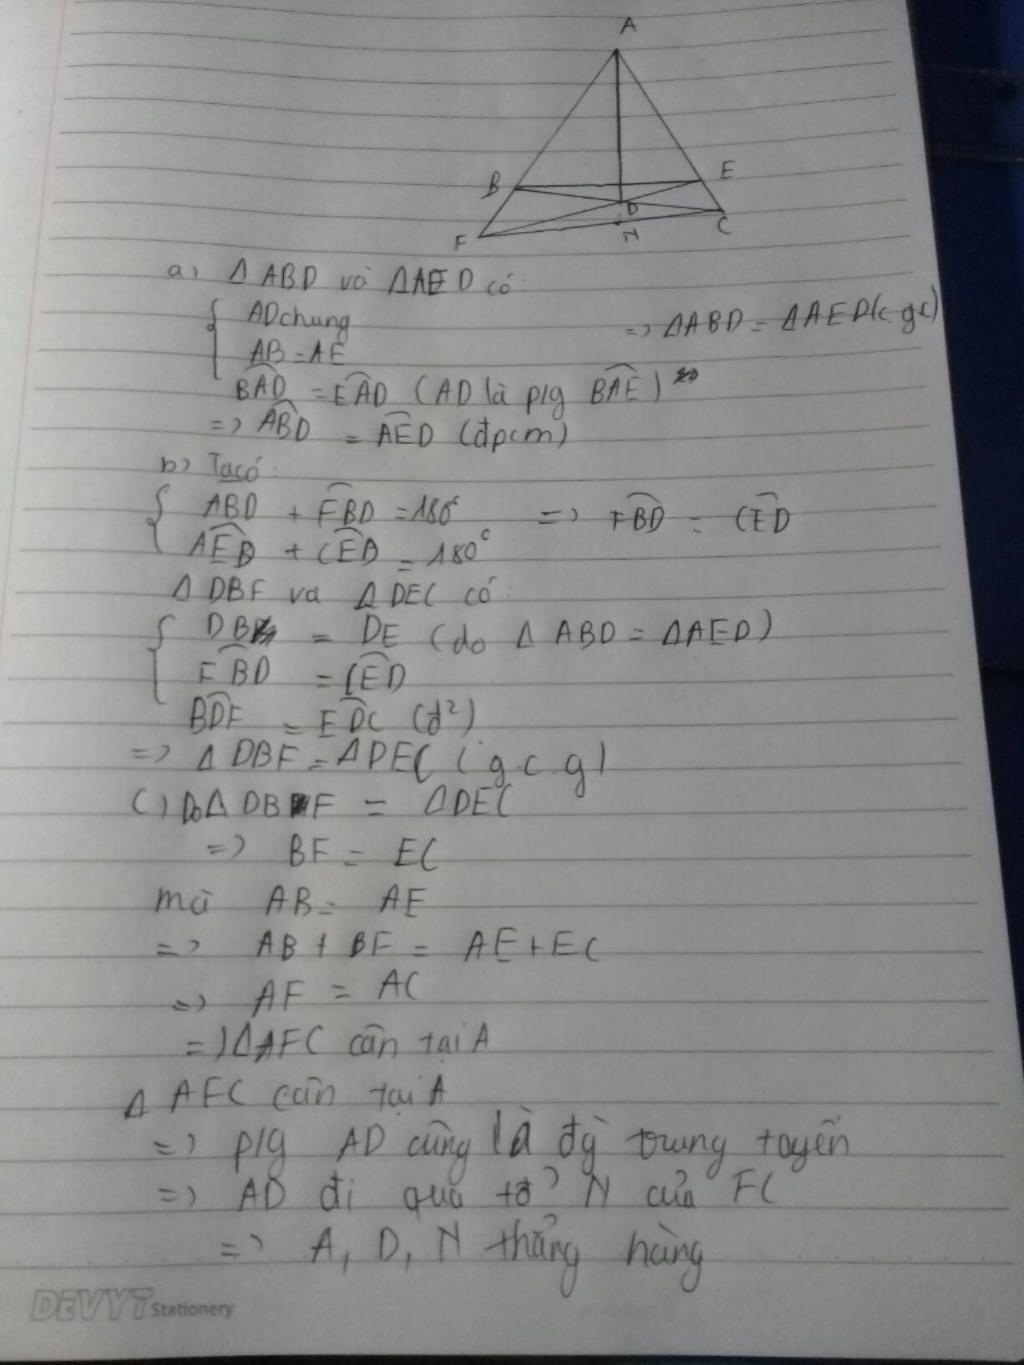 A
B
E
D
F
N
C
a) Δ ABD và ΔAED có:
ADchung
AB = AE
=> ΔABD = ΔAED(c.g.c)
BAD = EAD (AD là p/g BAE)
=> ABD = AED (đpcm)
b) Ta có:
ABD + FBD = 180° => FBD = CED
AED + CED = 180°
Δ DBF va Δ DEC có:
DB = DE (do Δ ABD = ΔAED)
FBD = CED
BDF = EDC (đ²)
=> Δ DBF = ΔDEC (g.c.g)
C) Do Δ DBF = ΔDEC
=> BF = EC
mà AB = AE
=> AB + BF = AE + EC
=> AF = AC
=> ΔAFC cân tại A
Δ AFC cân tại A
=> p/g AD cũng là đg trung tuyến
=> AD đi qua tđ N của FC
=> A, D, N thẳng hàng
DEVYT Stationery